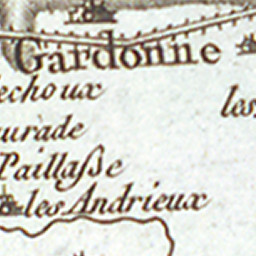 Gardonne
echoux
les
urade
Paillaſse
les Andrieux